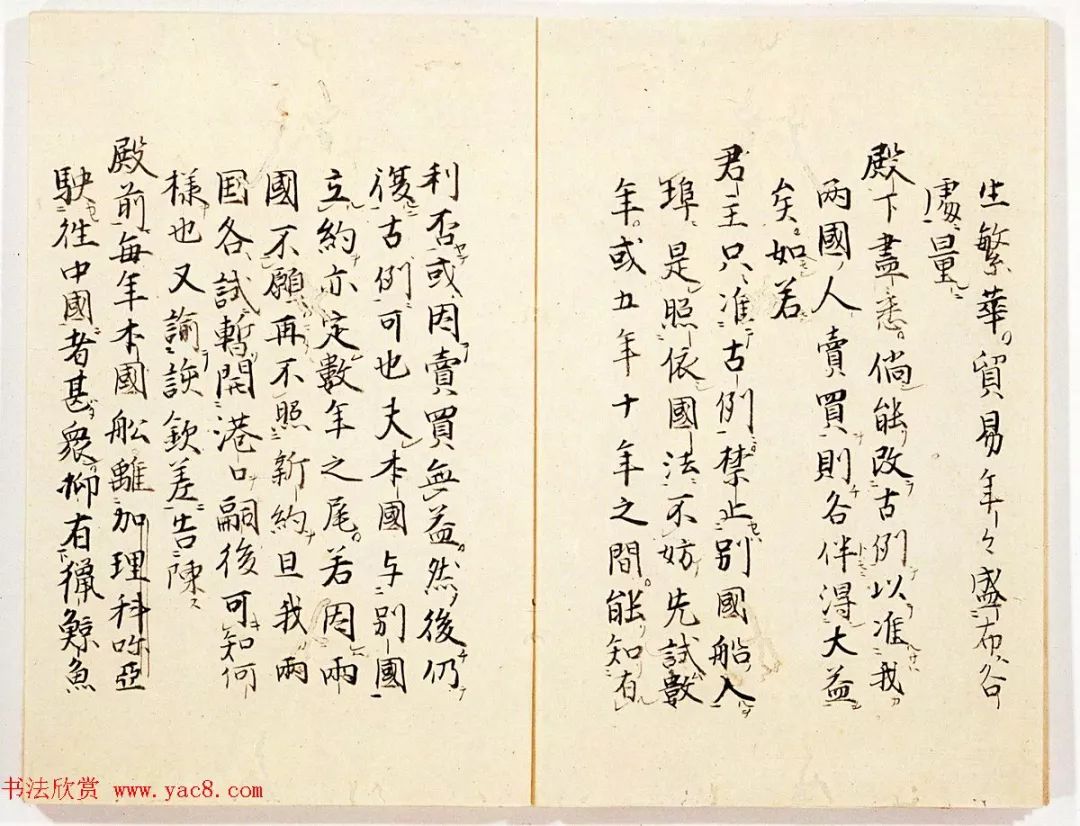 生繁華貿易年々盛布谷
處量
殿下盡悉倘能改古例以准我
两國人賣買則各伴得大益
矣如若
君主只准古例禁止别國船入
埠是照依國法不妨先試數
年或五年十年之間能知有
利否或因賣買無益然後仍
復古例可也夫本國与别國
立約亦定數年之尾若因兩
國不願再不照新約且我兩
国各試暫開港口嗣後可知何
樣也又諭該欽差告陳
殿前每年本國舩離加理科呅亞
駛徃中國者甚衆抑有獵鯨魚
书法欣赏 www.yac8.com